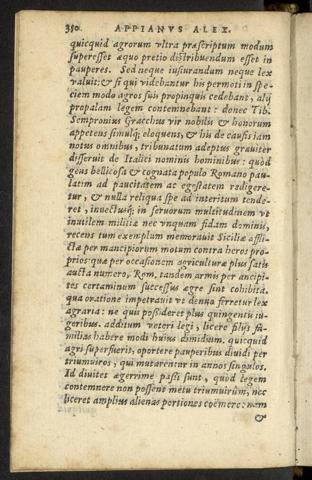 350. APPIANVS ALEX.
quicquid agrorum vltra præscriptum modum
superesset æquo pretio distribuendum esset in
pauperes. Sed neque iusiurandum neque lex
valuit: & si qui videbantur his permoti in spe-
ciem modo agros suis propinquis cedebant, alij
propalam legem contemnebant: donec Tib.
Sempronius Gracchus vir nobilis & honorum
appetens simulq; eloquens, & his de causis iam
notus omnibus, tribunatum adeptus grauiter
disseruit de Italici nominis hominibus: quòd
gens bellicosa & cognata populo Romano pau-
latim ad paucitatem ac egestatem redigere-
tur, & nulla reliqua spe ad interitum tende-
ret, inuectusq; in seruorum multitudinem vt
inutilem militiæ nec vnquam fidam dominis,
recens tum exemplum memorauit Siciliæ affli-
ctæ per mancipiorum motum contra heros pro-
prios quæ per occasionem agriculturæ plus satis
aucta numero, Rom. tandem armis per ancipi-
tes certaminum successus ægre sunt cohibita.
qua oratione impetrauit vt denuo ferretur lex
agraria: ne quis possideret plus quingentis iu-
geribus. additum veteri legi, licere filijs fa-
milias habere modi huius dimidium. quicquid
agri superfuerit, oportere pauperibus diuidi per
triumuiros, qui mutarentur in annos singulos.
Id diuites ægerrime passi sunt, quòd legem
contemnere non possent metu triumuirûm, nec
liceret amplius alienas portiones coëmere: nam
&